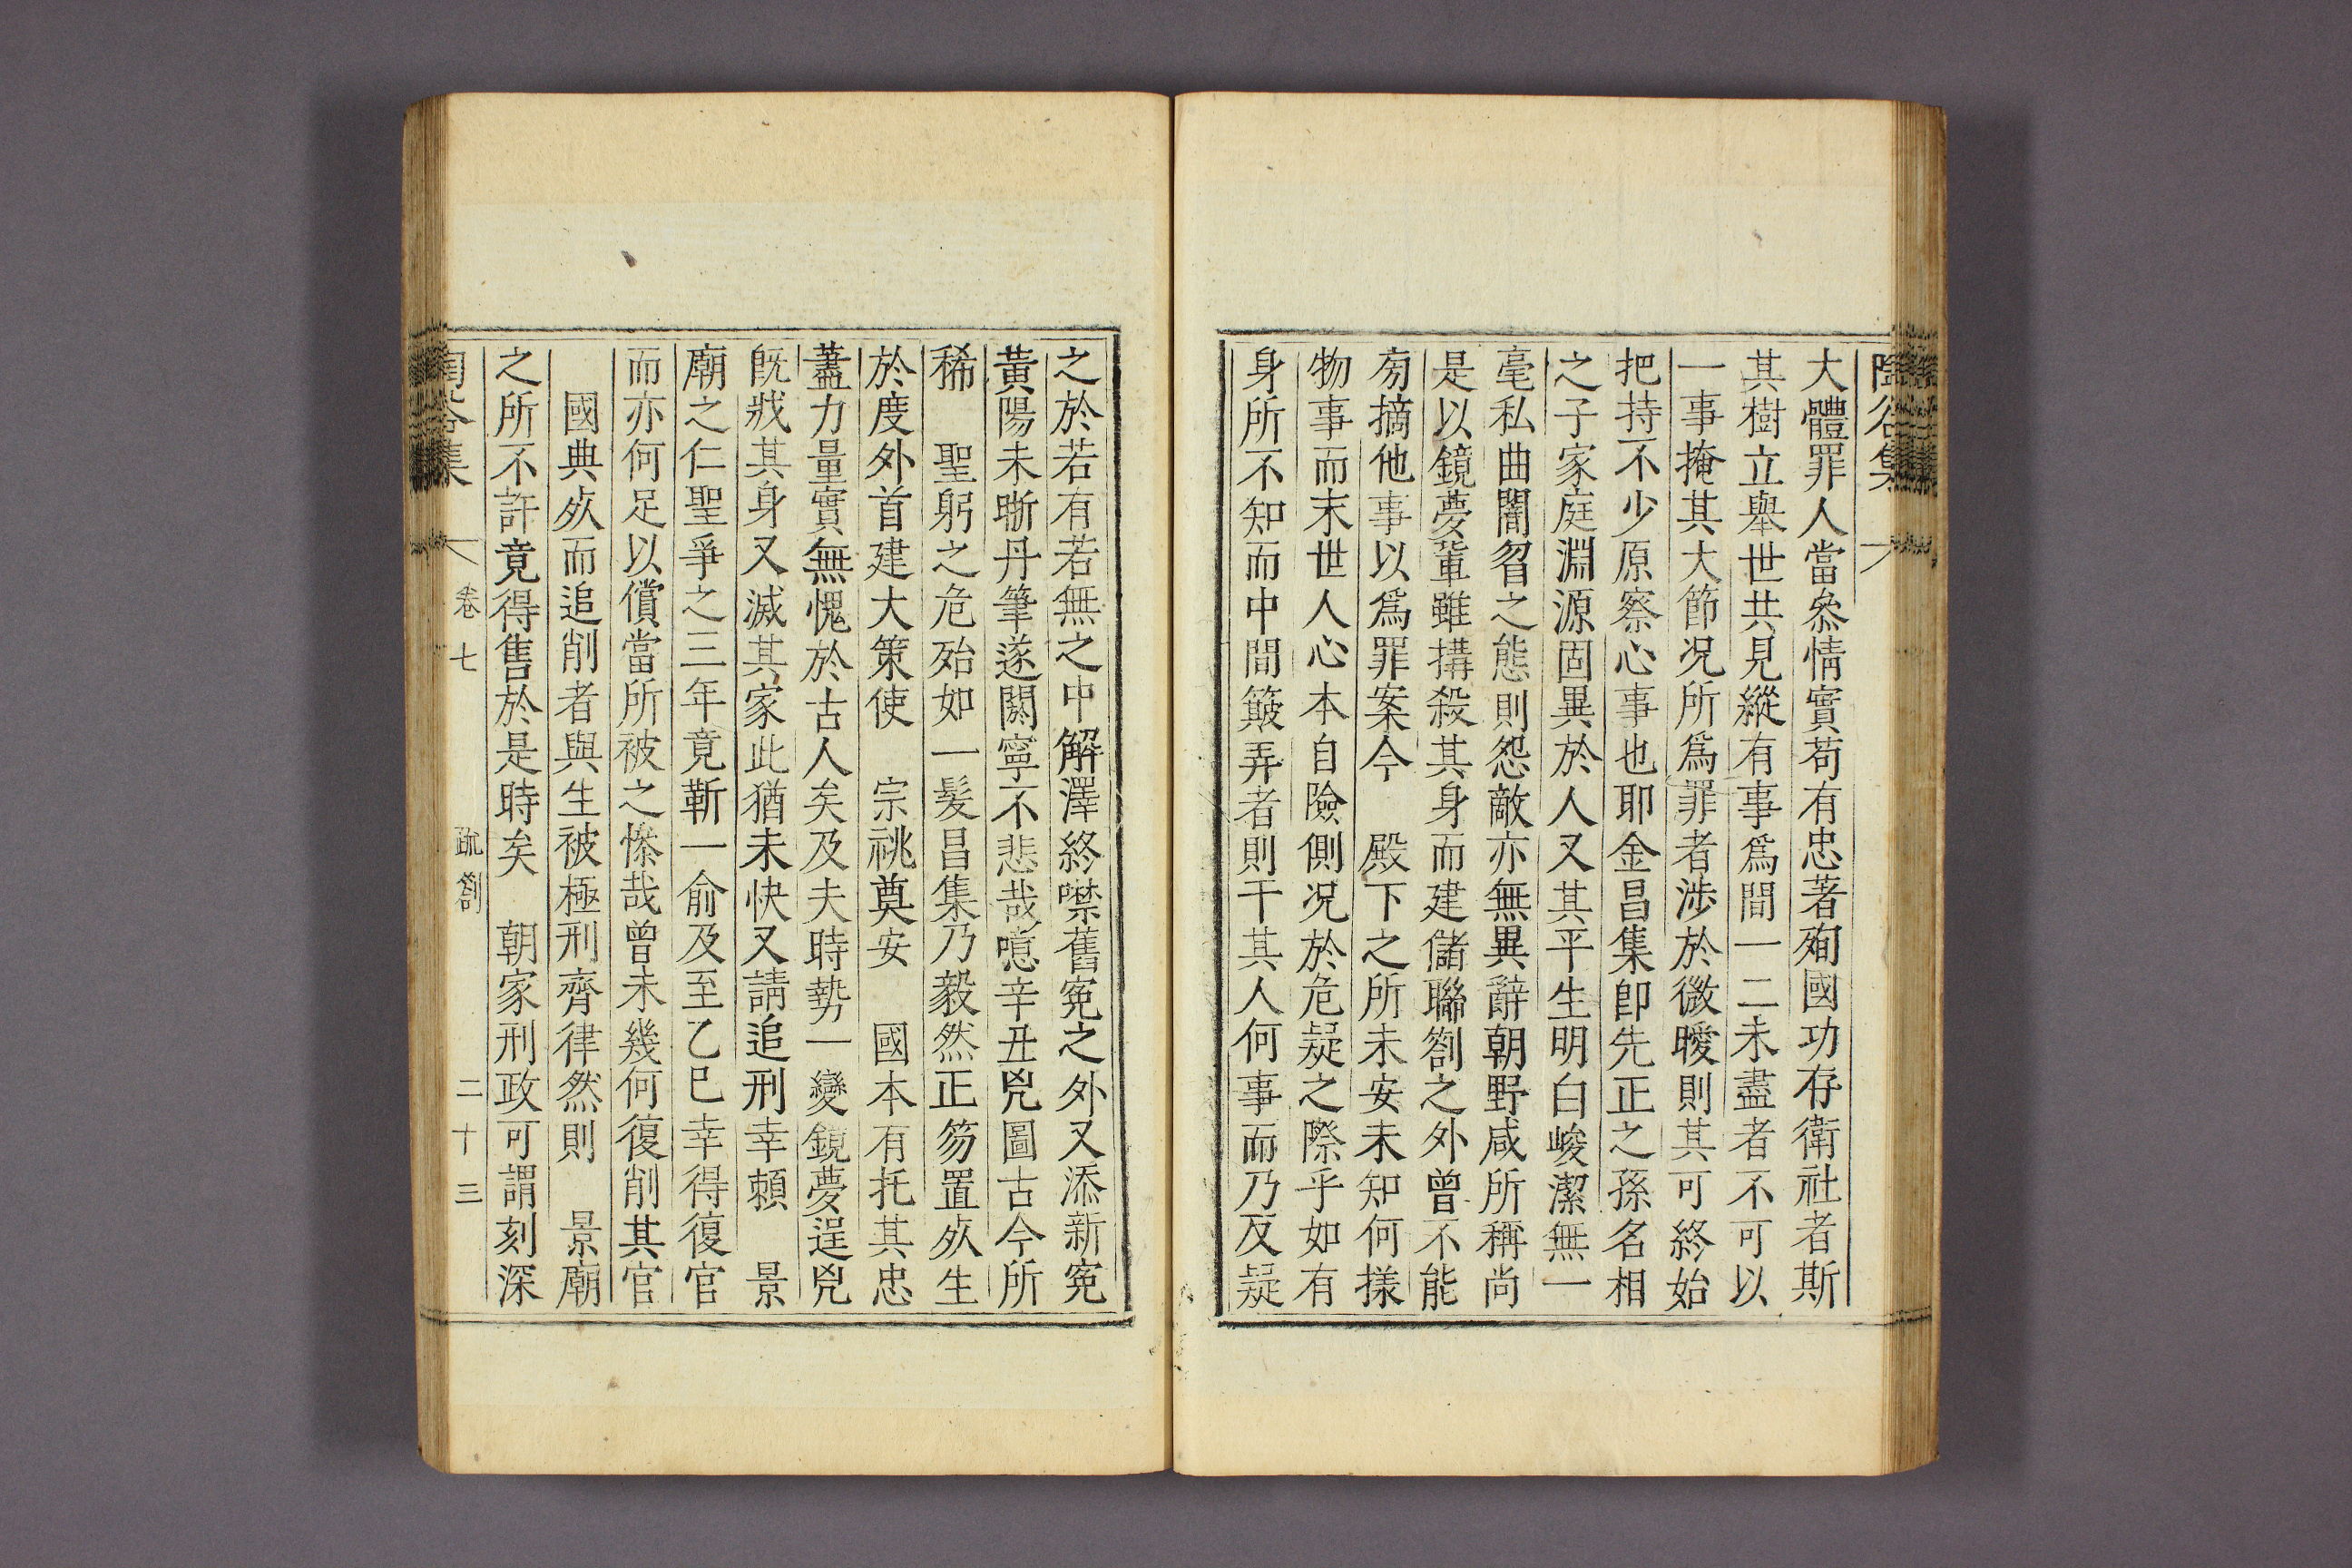 陶谷集
大體罪人當叅情實苟有忠著殉國功存衛社者斯
其樹立舉世共見縱有事爲間一二未盡者不可以
一事掩其大節况所爲罪者涉於微曖則其可終始
把持不少原察心事也耶金昌集卽先正之孫名相
之子家庭淵源固異於人又其平生明白峻潔無一
毫私曲闇曶之態則怨敵亦無異辭朝野咸所稱尚
是以鏡夢輩雖搆殺其身而建儲聯劄之外曾不能
旁摘他事以爲罪案今 殿下之所未安未知何㨾
物事而末世人心本自險側况於危疑之際乎如有
身所不知而中間簸弄者則干其人何事而乃反疑
之於若有若無之中解澤終噤舊寃之外又添新寃
黃陽未晣丹筆遂闕寧不悲哉噫辛丑兇圖古今所
稀 聖躬之危殆如一髮昌集乃毅然正笏置死生
於度外首建大策使 宗祧奠安 國本有托其忠
藎力量實無愧於古人矣及夫時勢一變鏡夢逞兇
旣戕其身又滅其家此猶未快又請追刑幸賴 景
廟之仁聖爭之三年竟靳一俞及至乙巳幸得復官
而亦何足以償當所被之慘哉曾未幾何復削其官
國典死而追削者與生被極刑齊律然則 景廟
之所不許竟得售於是時矣 朝家刑政可謂刻深
陶谷集 卷七 疏劄 二十三